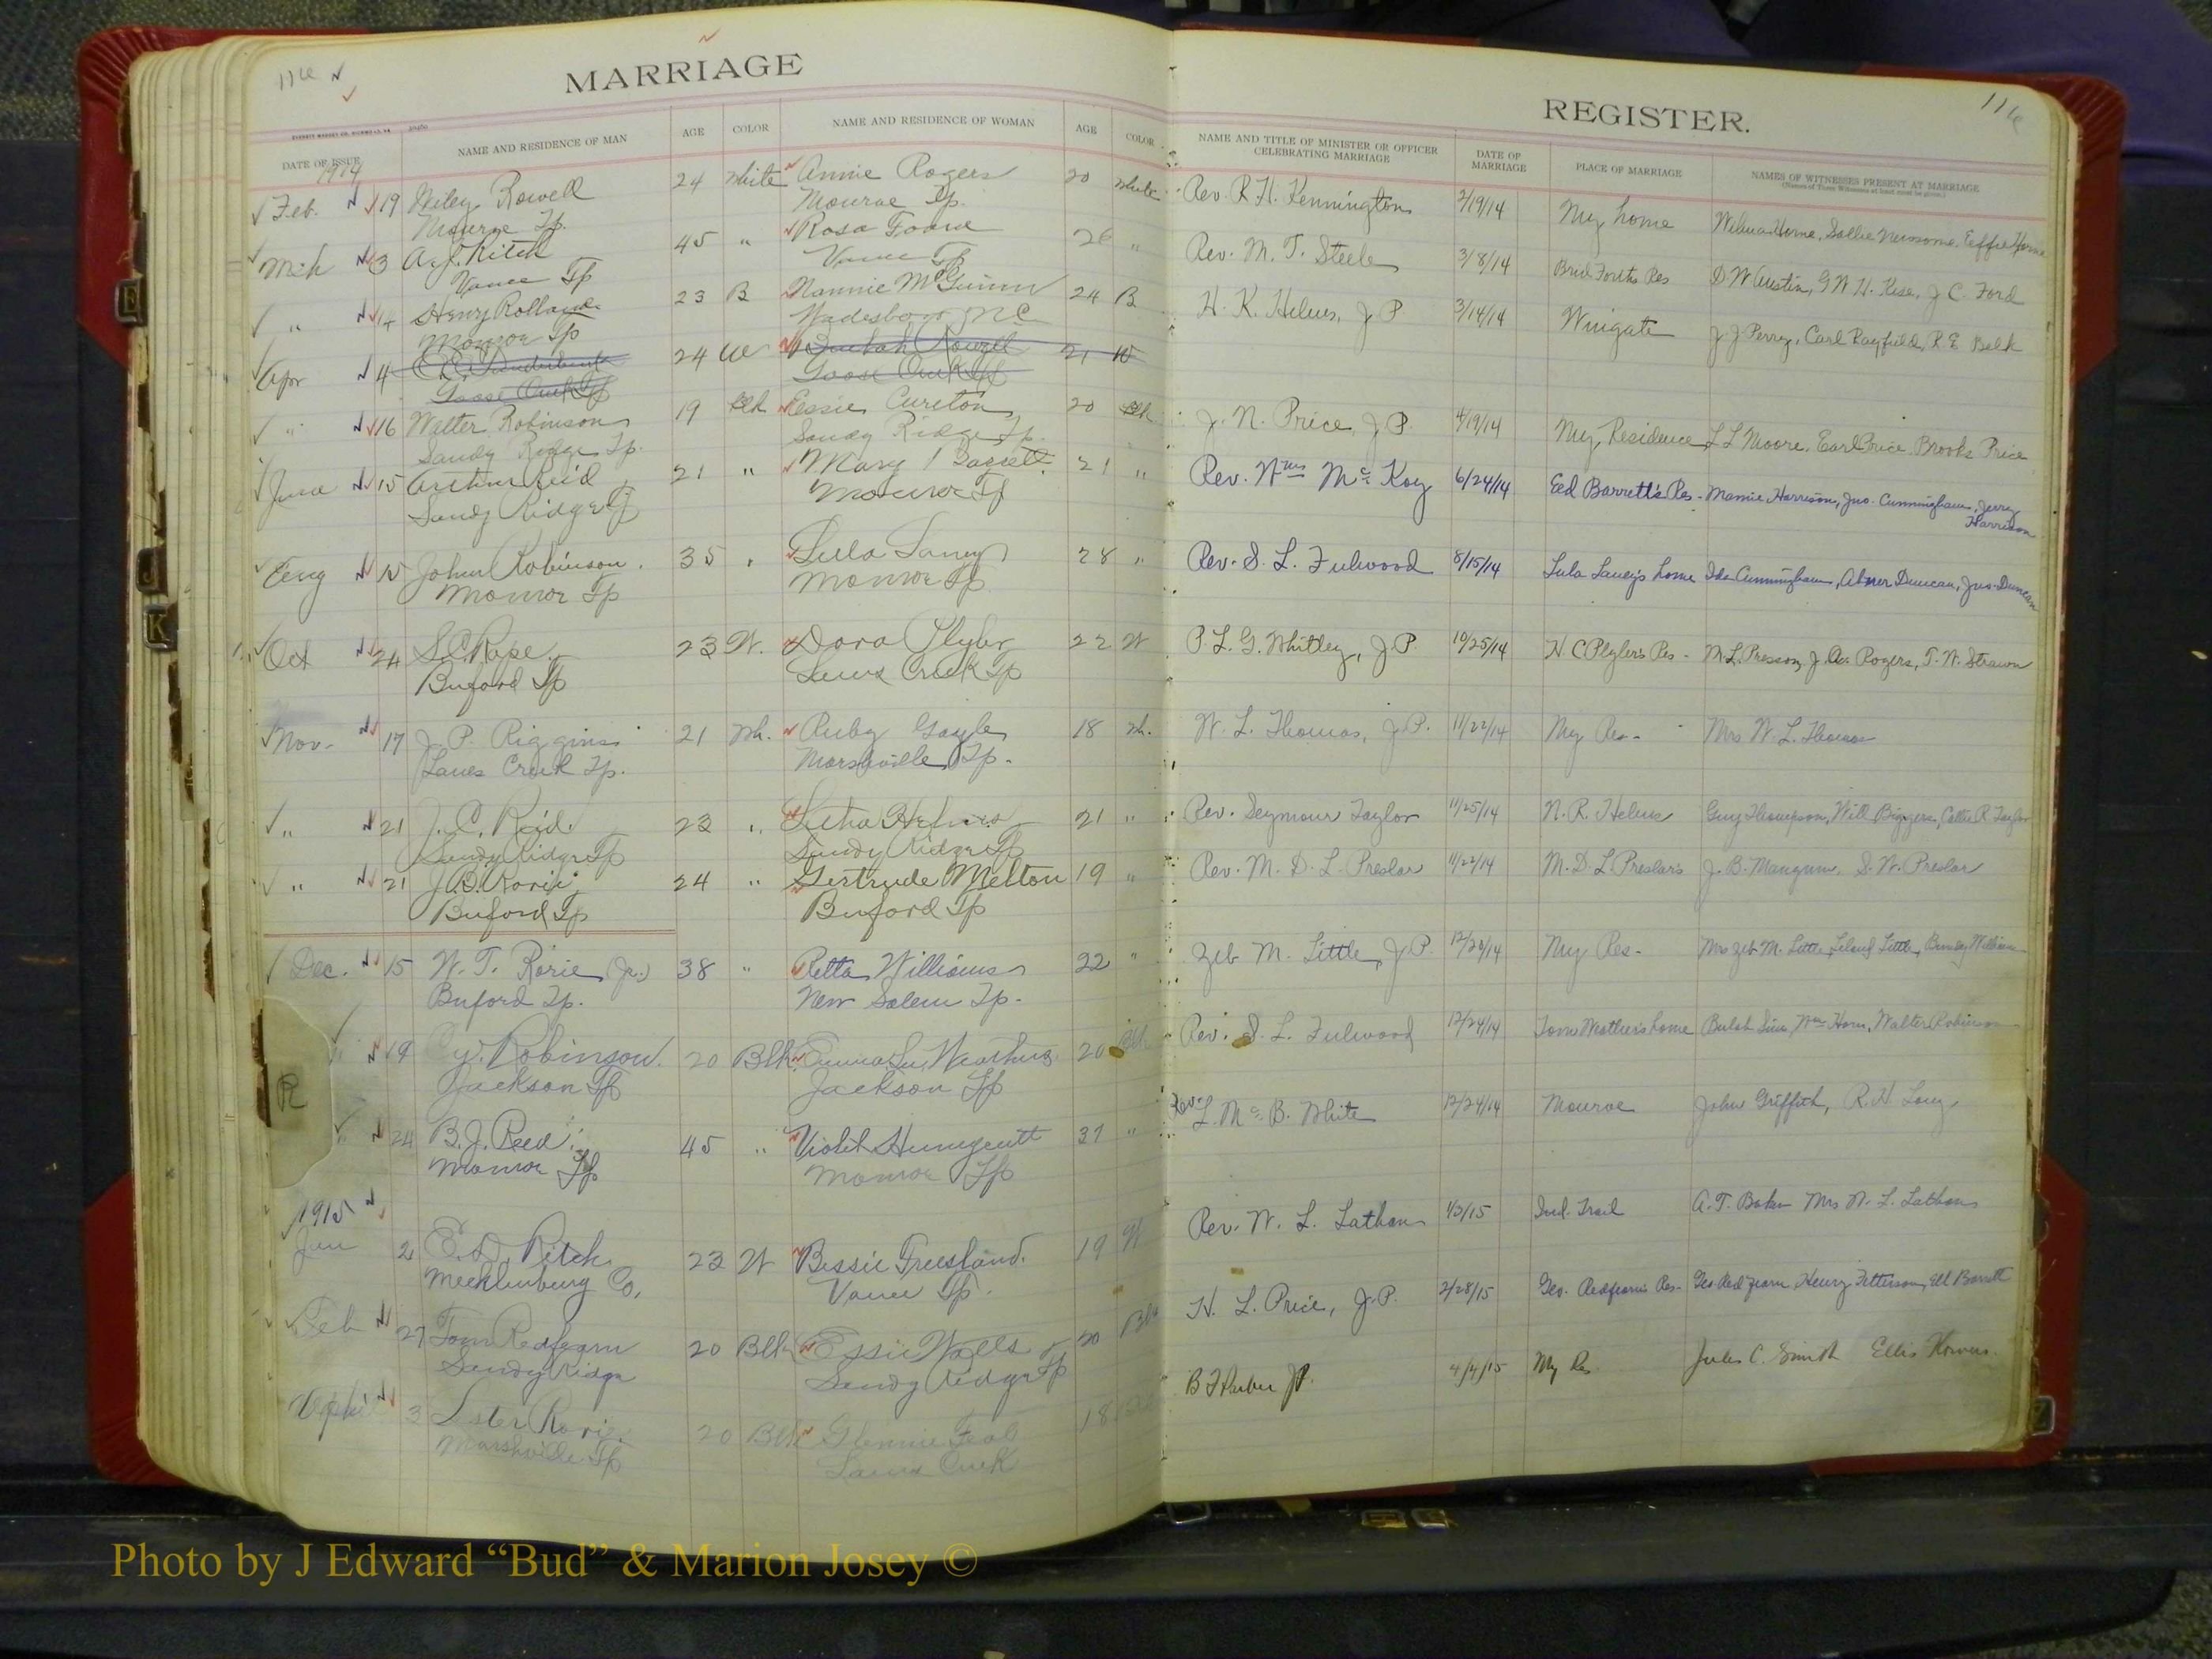 116
MARRIAGE
DATE OF ISSUE
NAME AND RESIDENCE OF MAN
AGE
COLOR
NAME AND RESIDENCE OF WOMAN
AGE
COLOR
1914
Feb. 19 Wiley Rowell 24 White Annie Rogers 20 White
Monroe Tp. Monroe Tp.
Mch 3 A.J. Ritch 45 " Rosa 26 "
Vance Tp Vance Tp
" 14 Henry 23 B Nannie McGuinn 24 B
Monroe Tp Wadesboro NC
Apr 4 24 W Beulah Rowell 21 W
Goose Creek Tp Goose Creek Tp
" 16 Walter Robinson 19 Blk Essie Cureton 20 Blk
Sandy Ridge Tp. Sandy Ridge Tp.
June 15 Arthur Reid 21 " Mary 21 "
Sandy Ridge Tp Monroe Tp
Aug 15 John Robinson 35 " Lula Laney 28 "
Monroe Tp Monroe Tp
Oct 24 S.C. Rape 23 W. Dora Plyler 22 W
Buford Tp Lanes Creek Tp
Nov. 17 J. P. Riggins 21 Wh. Ruby Gayle 18 Wh.
Lanes Creek Tp. Marshville Tp.
" 21 J. C. Reid 23 " Letha Helms 21 "
Sandy Ridge Tp Sandy Ridge Tp
" 21 J.B. Rorie 24 " Gertrude Melton 19 "
Buford Tp Buford Tp
Dec. 15 W. T. Rorie (Jr.) 38 " Retta Williams 22 "
Buford Tp. New Salem Tp.
" 19 Cy. Robinson 20 Blk 20 Blk
Jackson Tp Jackson Tp
" 24 B.J. Reed 45 " Violet 37 "
Monroe Tp Monroe Tp
1915
Jan 2 E. D. Ritch 23 W Bessie 19 W
Mecklenburg Co. Vance Tp.
Feb 27 Tom Redfearn 20 Blk Essie Walls 20 Blk
Sandy Ridge Sandy Ridge Tp
April 3 Lster Rorie 20 Blk Glennie 18
Marshville Tp Lanes Creek
R
REGISTER.
116
NAME AND TITLE OF MINISTER OR OFFICER
CELEBRATING MARRIAGE
DATE OF
MARRIAGE
PLACE OF MARRIAGE
NAMES OF WITNESSES PRESENT AT MARRIAGE
(Names of Three Witnesses at least must be given.)
Rev. R. H. Kennington 2/19/14 My home Wilma Horne, Sallie Newsome, Effie Horne
Rev. M. T. Steele 3/8/14 Res D W Austin, G W H. , J C. Ford
H. K. Helms, J P 3/14/14 Wingate J J Perry, Carl Rayfield, R E Belk
J. N. Price, J P. 4/19/14 My Residence L L Moore, Earl Price, Brooks Price
Rev. Wm Mc Koy 6/24/14 Ed Barrett's Res - Mamie Harrison, Jno. Cunningham, Jerry
Harrison
Rev. S. L. Fulwood 8/15/14 Lula Laney's home Ida Cunningham, Abner Duncan, Jno Duncan
P. L. G. Whitley, J P. 10/25/14 H C Plyler's Res - M. L. Presson, J. A. Rogers, T. W. Strawn
W. L. Thomas, J. P. 11/22/14 My Res - Mrs W. L. Thomas
Rev. Seymour Taylor 11/25/14 N. R. Helms Guy Thompson, Will Biggers, R Taylor
Rev. M. D. L. Preslar 11/22/14 M. D. L. Preslar's J. B. Mangum, S. W. Preslar
Zeb M. Little, J P. 12/20/14 My Res - Mrs Zeb M. Little, Leland Little, Williams
Rev. S. L. Fulwood 12/24/14 home Wm Horn, Walter Robinson
Rev. L. Mc B. White 12/24/14 Monroe John Griffith, R. H. Long
Rev. W. L. Latham 1/3/15 Ind. Trail A. T. Baker Mrs W. L. Latham
H. L. Price, J. P. 2/28/15 Geo. Redfearn's Res - Geo Redfearn, Henry , Ed Barrett
B F Parker JP. 4/4/15 My Res. Jules C. Smith Ellis
Photo by J Edward “Bud” & Marion Josey ©